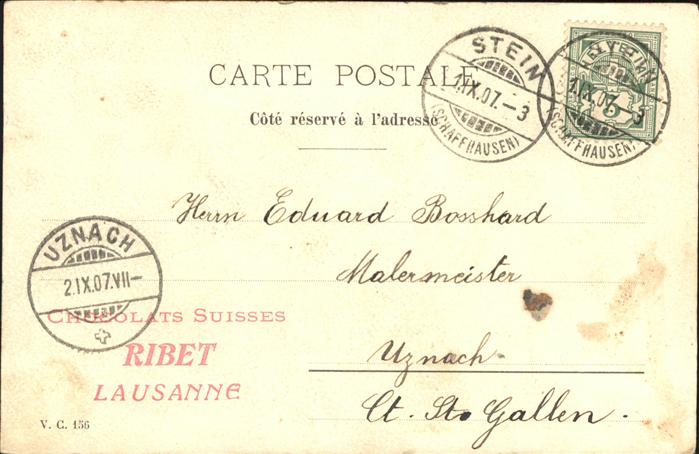 CARTE POSTALE
Côté réservé à l'adresse
STEIN
1.IX.07.–3
(SCHAFFHAUSEN)
STEIN
1.IX.07.–3
(SCHAFFHAUSEN)
Herrn Eduard Bosshard
Malermeister
Uznach.
Ct. St. Gallen.
UZNACH
2.IX.07.VII–
CHOCOLATS SUISSES
RIBET
LAUSANNE
V. C. 156